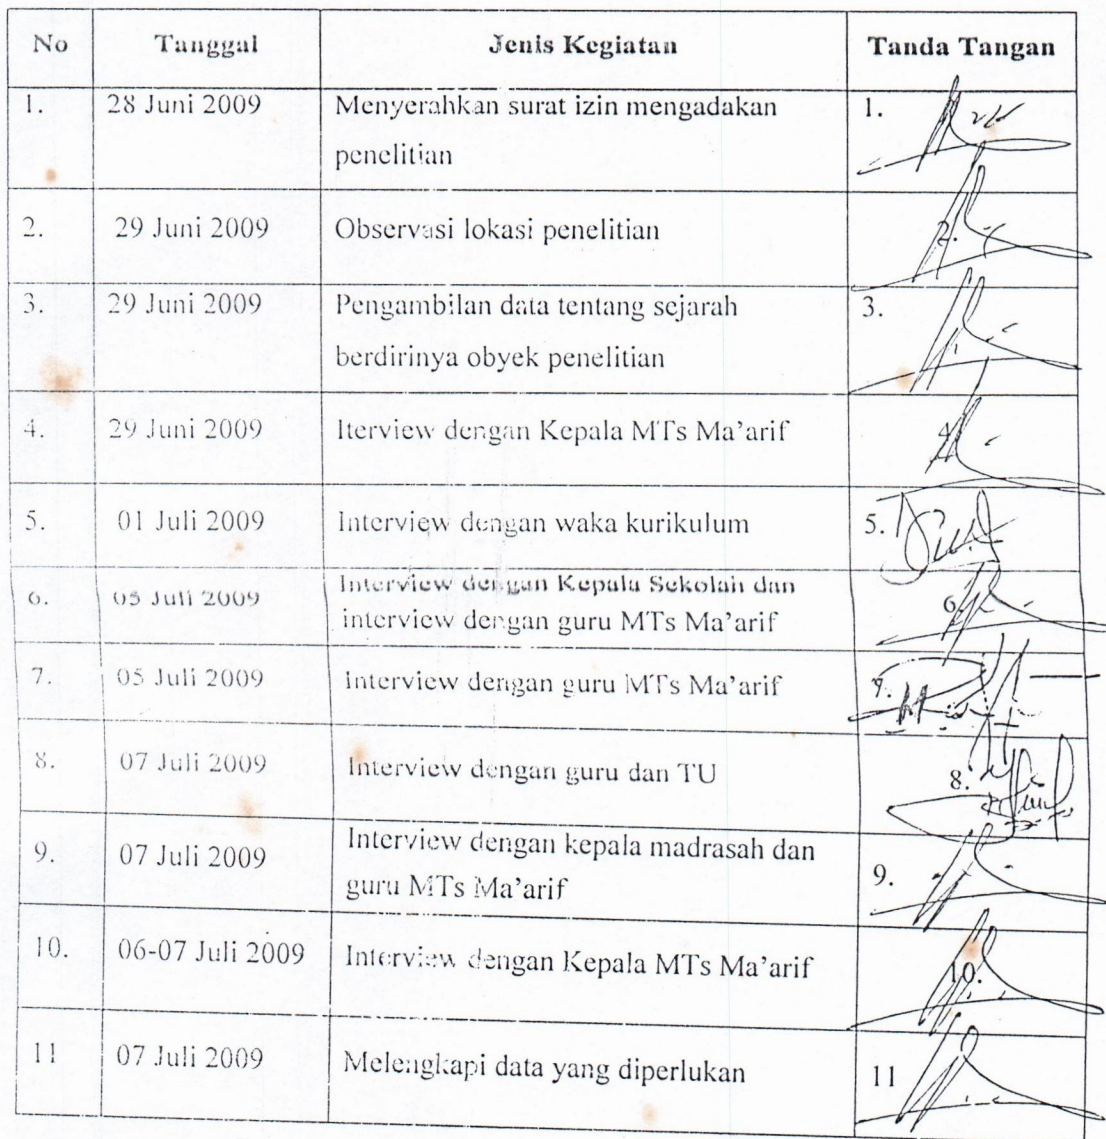 No Tanggal Jenis Kegiatan Tanda Tangan
1. 28 Juni 2009 Menyerahkan surat izin mengadakan 1.
penelitian
2. 29 Juni 2009 Observasi lokasi penelitian 2.
3. 29 Juni 2009 Pengambilan data tentang sejarah 3.
berdirinya obyek penelitian
4. 29 Juni 2009 Iterview dengan Kepala MTs Ma'arif 4.
5. 01 Juli 2009 Interview dengan waka kurikulum 5.
6. 05 Juli 2009 Interview dengan Kepala Sekolah dan 6.
interview dengan guru MTs Ma'arif
7. 05 Juli 2009 Interview dengan guru MTs Ma'arif 7.
8. 07 Juli 2009 Interview dengan guru dan TU 8.
9. 07 Juli 2009 Interview dengan kepala madrasah dan 9.
guru MTs Ma'arif
10. 06-07 Juli 2009 Interview dengan Kepala MTs Ma'arif 10.
11 07 Juli 2009 Melengkapi data yang diperlukan 11